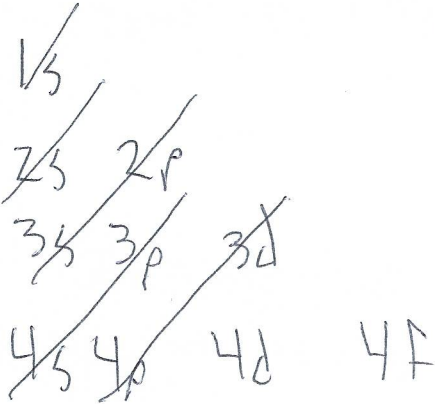 1s
2s 2p
3s 3p 3d
4s 4p 4d 4f